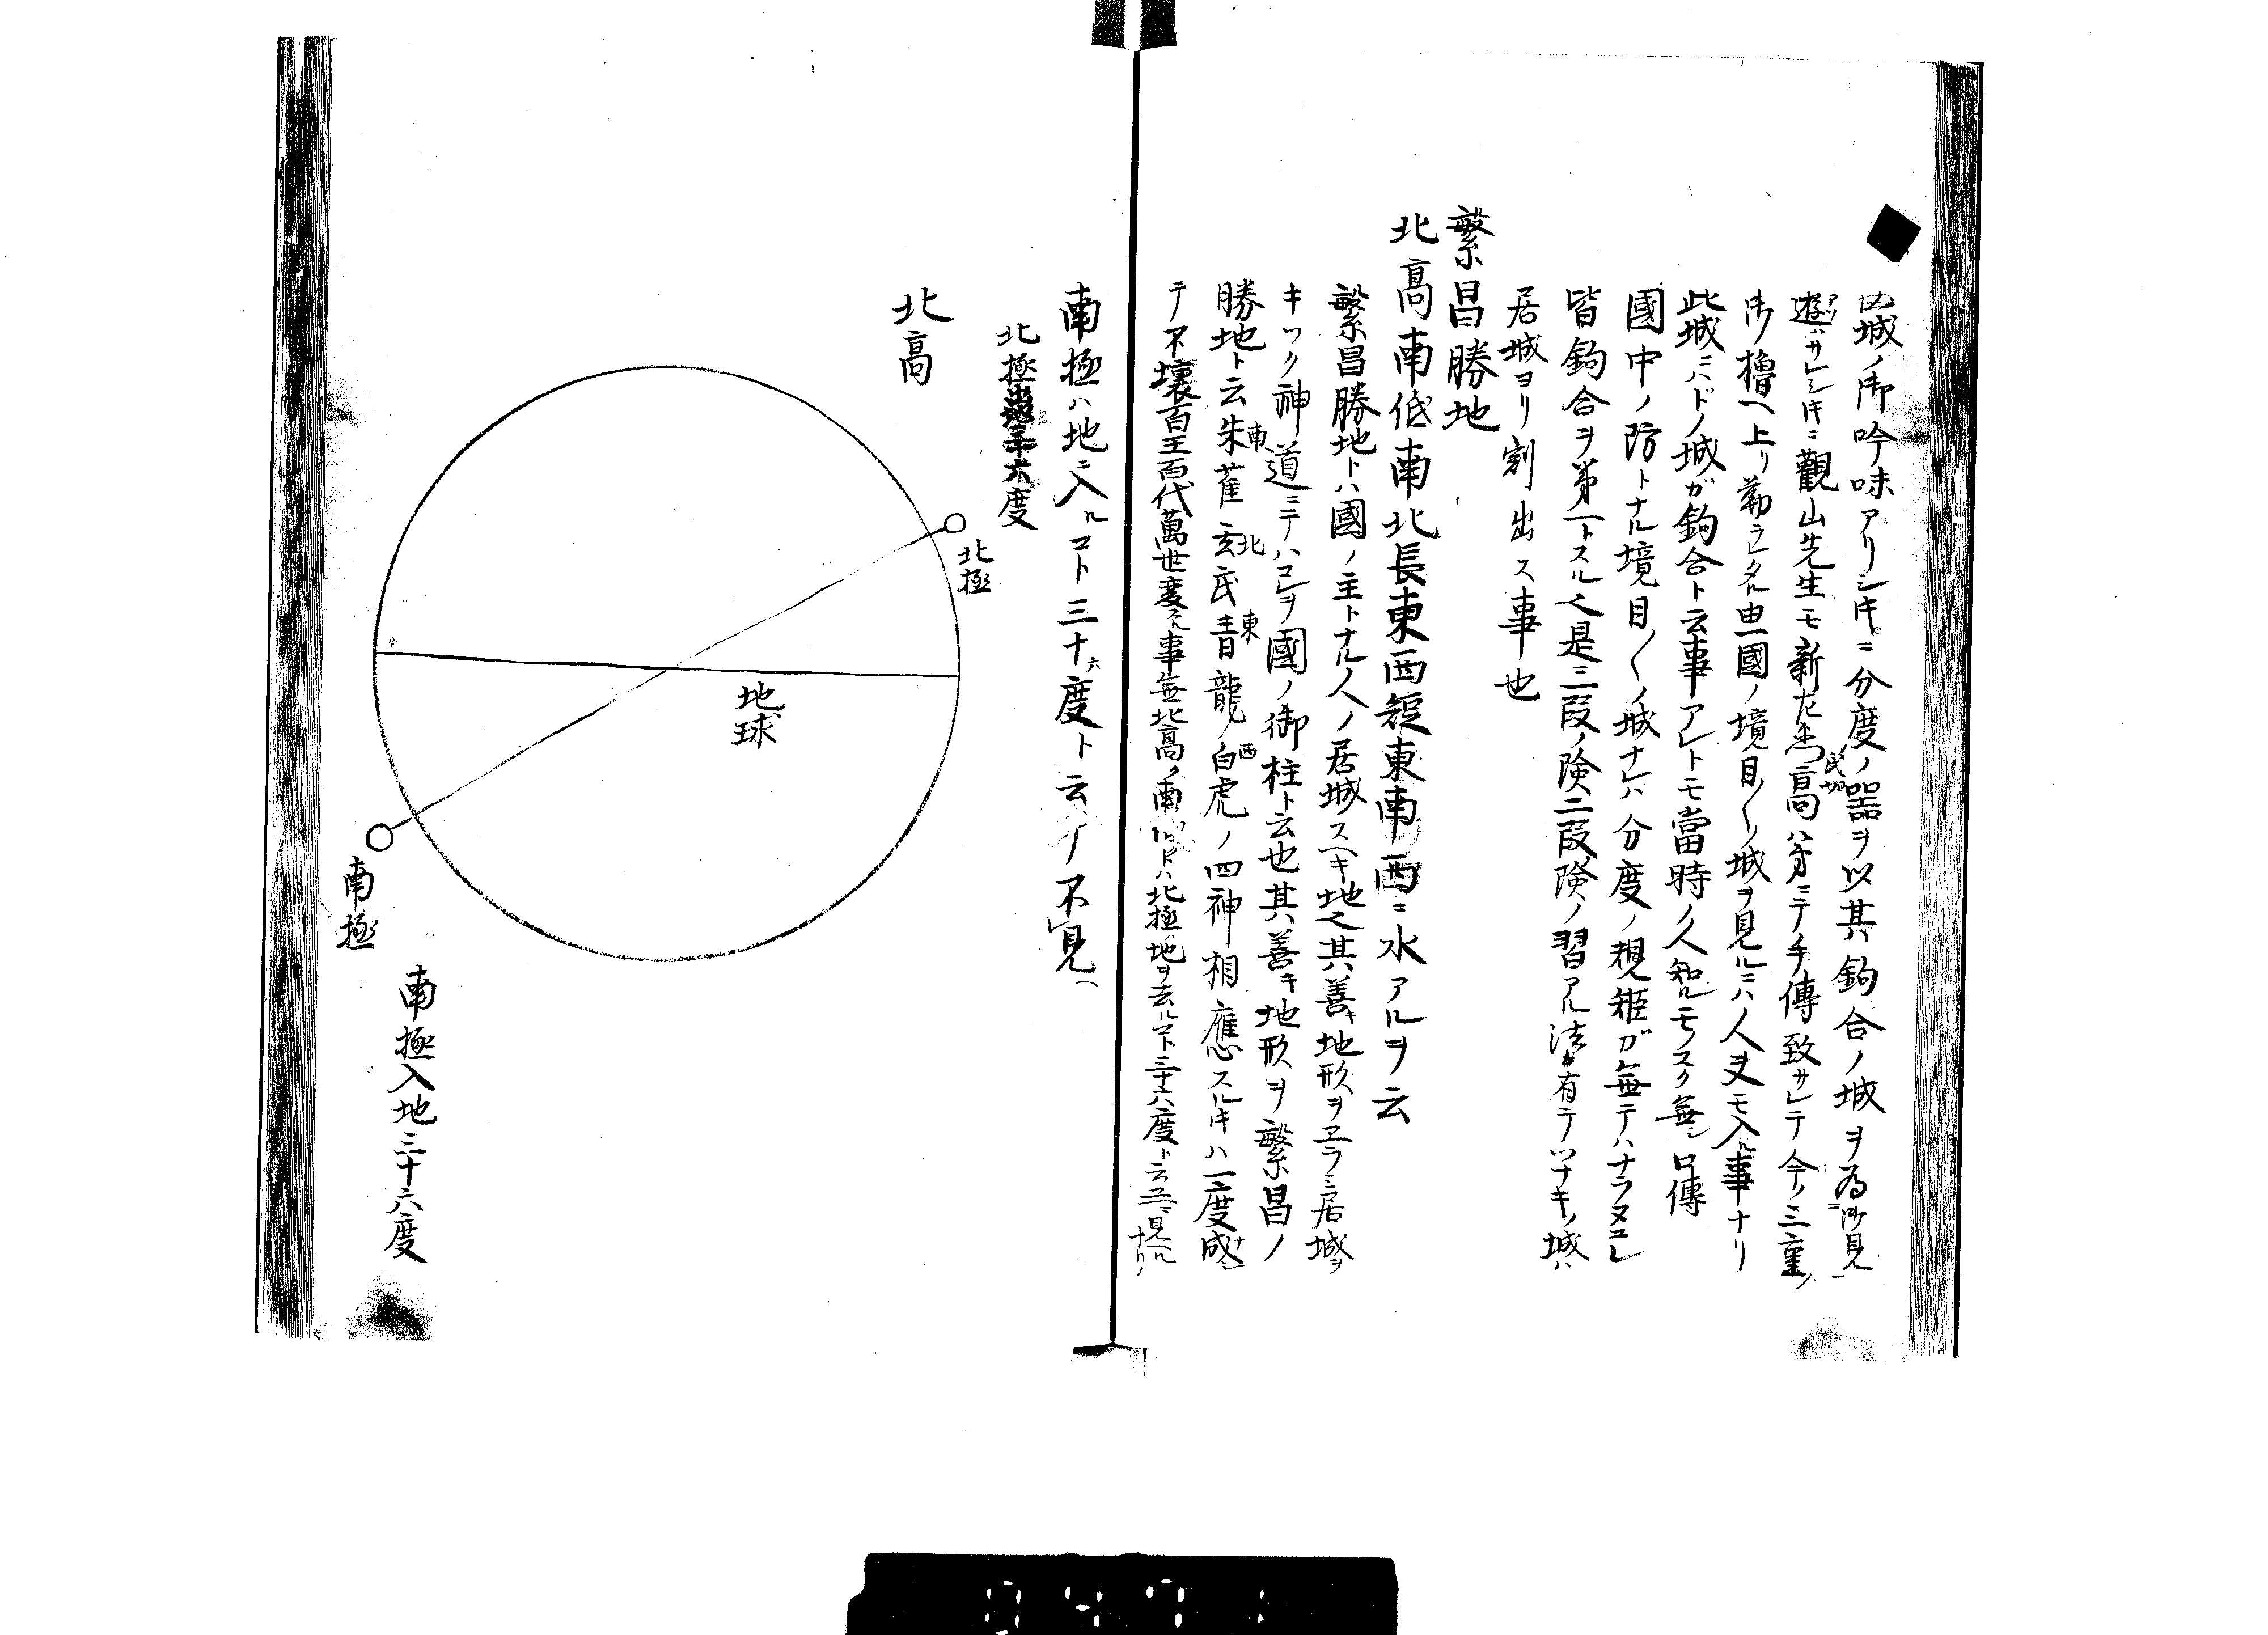 城ノ御吟味アリシ时ニ分度ノ器ヲ以其鈎合ノ城ヲ為御見
遊ハサレシ时ニ觀山先生モ新左高ハ弟ニテノ手傳致サレテ今ノ三重ノ
御櫓ヘ上リ勤ラレタル由一國ノ境目〱ノ城ヲ見ルニハ人丈モ入ル事ナリ
此城ニハドノ城ガ鈎合ト云事アレトモ當時ノ人知ルモノスク無シ口傳
國中ノ防トナル境目〱ノ城ナレハ分度ノ規矩ガ無テハナラヌユヘ
皆鈎合ヲ第一トスル也是三段ノ険二段険ノ習アル法有テツナキノ城ハ
居城ヨリ割出ス事也
繁昌勝地
北高南低南北長東西短東南西ニ水アルヲ云
繁昌勝地トハ國ノ主トナル人ノ居城スヘキ地也其善キ地形ヲヱラミ居城ヲ
キツク神道ニテハコレヲ國ノ御柱ト云也其善キ地形ヲ繁昌ノ
勝地ト云朱雀玄武青龍白虎ノ四神相應スル时ハ一度成
テ不壊百王百代萬世変ル事無北高ノ南ハ北極地ヲ去ルコト三十六度ト云ユヘニ見ヘルナリ
南極ハ地ニ入ルコト三十六度ト云テ不見
北極出地三十六度
北高
北極
地球
南極
南極入地三十六度